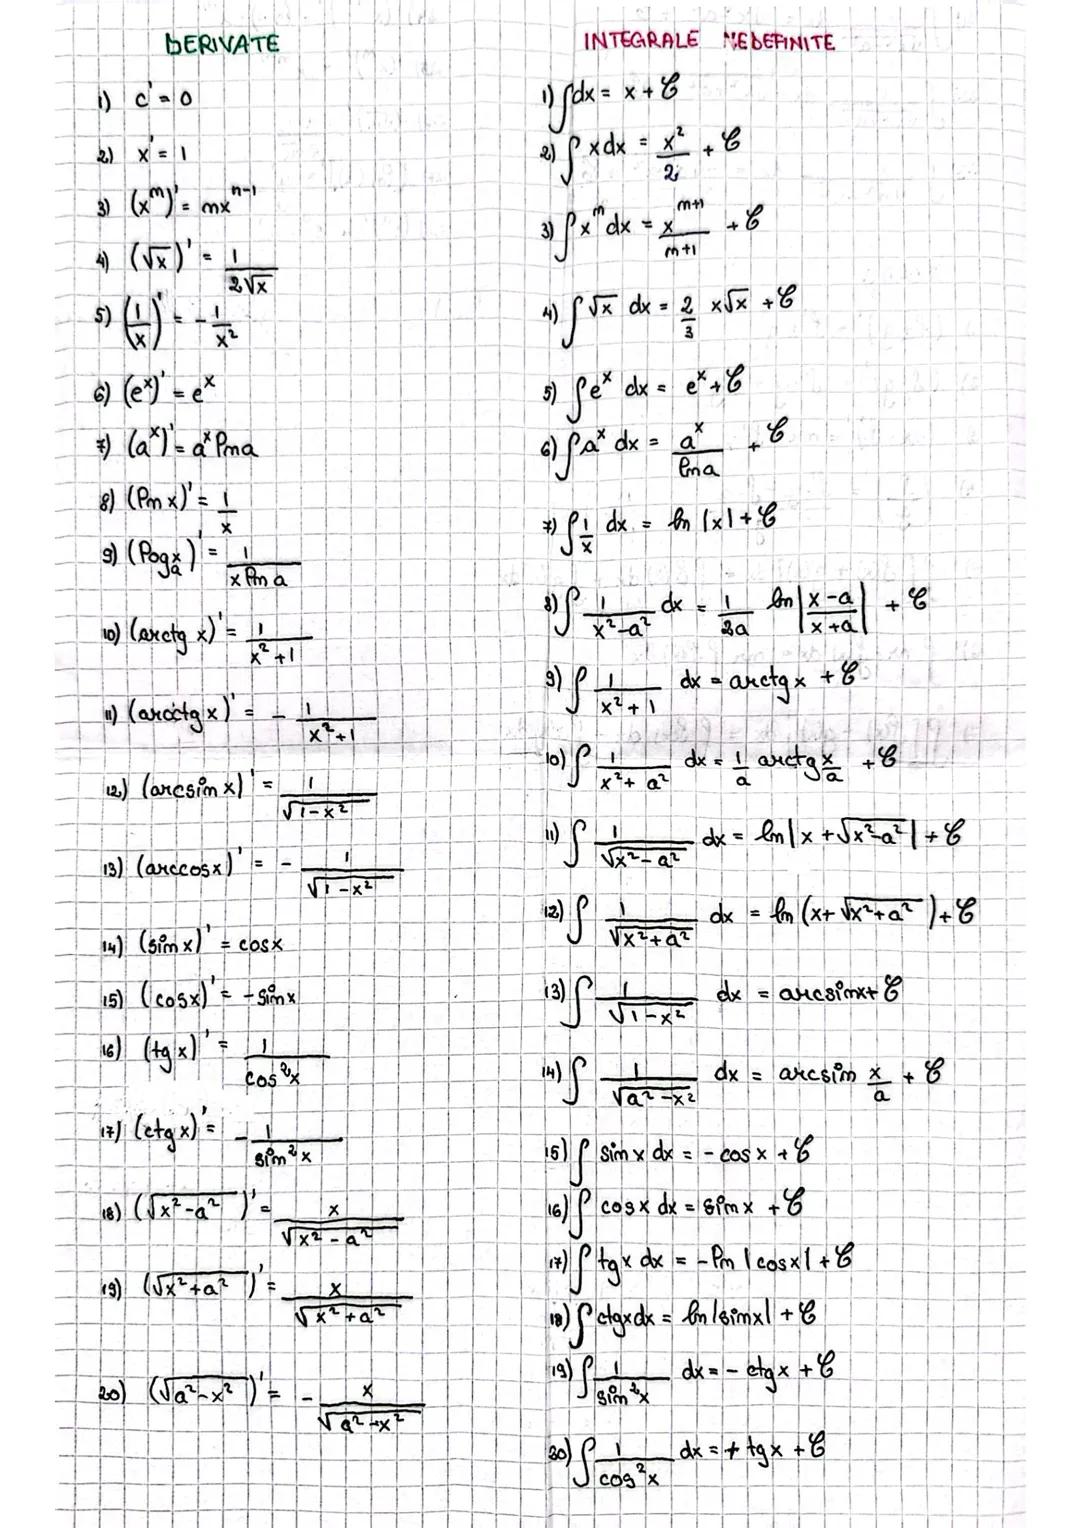 DERIVATE
1) c' = 0
2) x' = 1
3) (xⁿ)' = nxⁿ⁻¹
4) (√x)' = 1/(2√x)
5) (1/x)' = -1/x²
6) (eˣ)' = eˣ
7) (aˣ)' = aˣ ln a
8) (ln x)' = 1/x
9) (logₐ x)' = 1/(x ln a)
10) (arctg x)' = 1/(x²+1)
11) (arcctg x)' = - 1/(x²+1)
12) (arcsin x)' = 1/√(1-x²)
13) (arccos x)' = - 1/√(1-x²)
14) (sin x)' = cos x
15) (cos x)' = - sin x
16) (tg x)' = 1/cos²x
17) (ctg x)' = - 1/sin²x
18) (√(x²-a²))' = x/√(x²-a²)
19) (√(x²+a²))' = x/√(x²+a²)
20) (√(a²-x²))' = - x/√(a²-x²)
INTEGRALE NEDEFINITE
1) ∫dx = x + C
2) ∫x dx = x²/2 + C
3) ∫xⁿ dx = xⁿ⁺¹/(n+1) + C
4) ∫√x dx = 2/3 x√x + C
5) ∫eˣ dx = eˣ + C
6) ∫aˣ dx = aˣ/ln a + C
7) ∫1/x dx = ln |x| + C
8) ∫1/(x²-a²) dx = 1/2a ln |(x-a)/(x+a)| + C
9) ∫1/(x²+1) dx = arctg x + C
10) ∫1/(x²+a²) dx = 1/a arctg x/a + C
11) ∫1/√(x²-a²) dx = ln |x + √(x²-a²)| + C
12) ∫1/√(x²+a²) dx = ln (x + √(x²+a²)) + C
13) ∫1/√(1-x²) dx = arcsin x + C
14) ∫1/√(a²-x²) dx = arcsin x/a + C
15) ∫sin x dx = - cos x + C
16) ∫cos x dx = sin x + C
17) ∫tg x dx = - ln |cos x| + C
18) ∫ctg x dx = ln |sin x| + C
19) ∫1/sin²x dx = - ctg x + C
20) ∫1/cos²x dx = + tg x + C